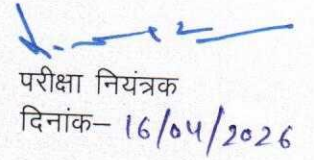 परीक्षा नियंत्रक
दिनांक– 16/04/2026